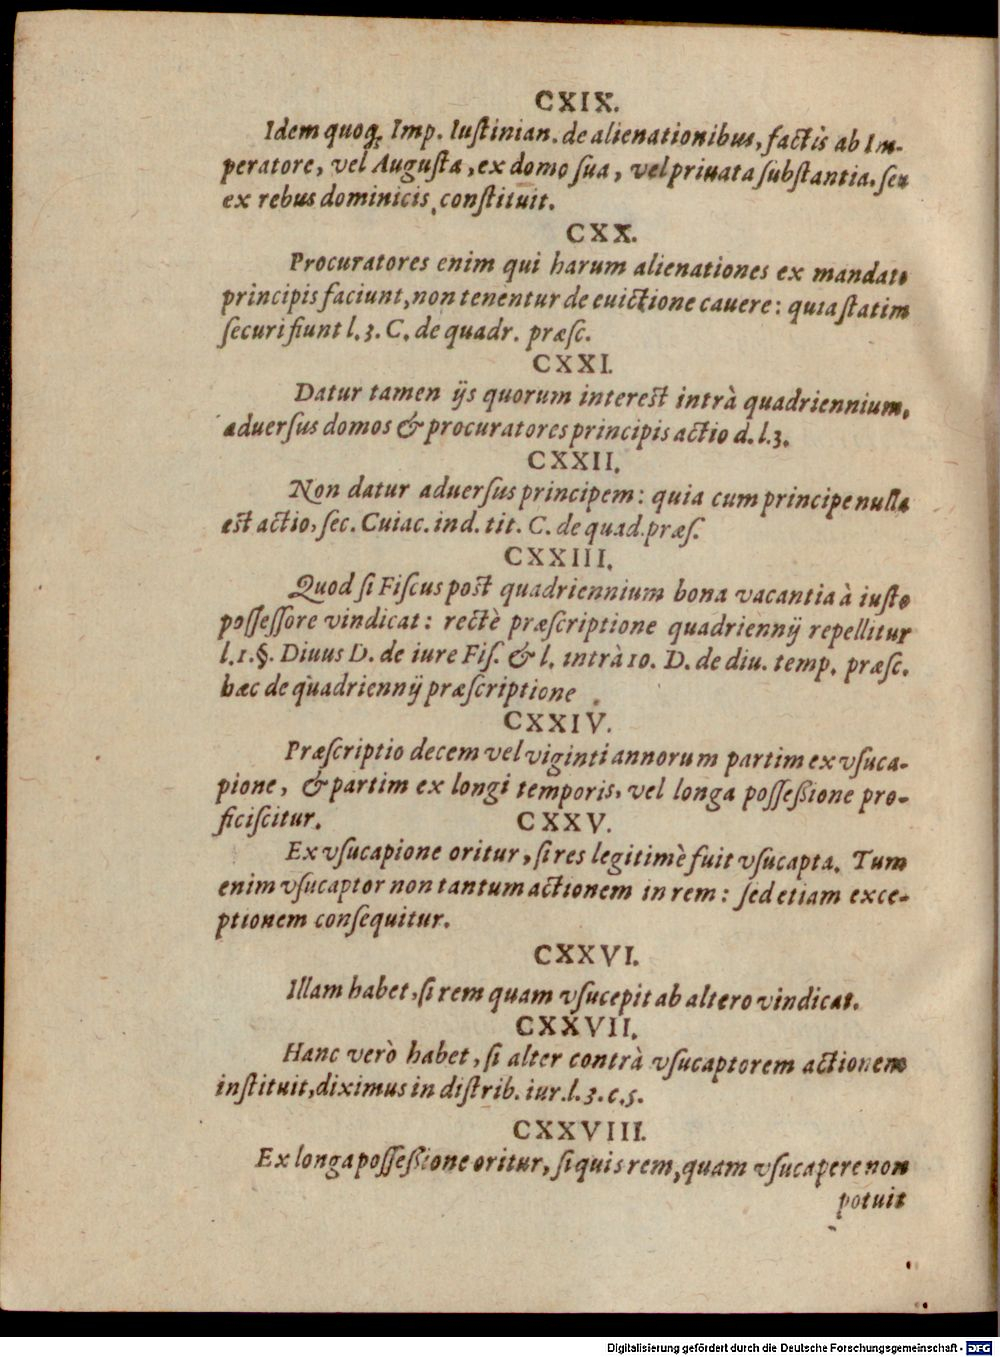 CXIX.
Idem quoq; Imp. Iuſtinian. de alienationibus, factis ab Im-
peratore, vel Auguſta, ex domo ſua, vel priuata ſubſtantia. ſeu
ex rebus dominicis, conſtituit.
CXX.
Procuratores enim qui harum alienationes ex mandato
principis faciunt, non tenentur de euictione cauere: quia ſtatim
ſecuri fiunt l. 3. C. de quadr. præſc.
CXXI.
Datur tamen ijs quorum intereſt intrà quadriennium,
aduerſus domos & procuratores principis actio d. l. 3.
CXXII.
Non datur aduerſus principem: quia cum principe nulla
eſt actio, ſec. Cuiac. ind. tit. C. de quad. præſ.
CXXIII.
Quod ſi Fiſcus poſt quadriennium bona vacantia à iuſto
poſſeſſore vindicat: rectè præſcriptione quadriennij repellitur
l. 1. §. Diuus D. de iure Fiſ. & l. intrà 10. D. de diu. temp. præſc.
hæc de quadriennij præſcriptione
CXXIV.
Præſcriptio decem vel viginti annorum partim ex vſuca-
pione, & partim ex longi temporis, vel longa poſſeßione pro-
ficiſcitur.
CXXV.
Ex vſucapione oritur, ſi res legitimè fuit vſucapta. Tum
enim vſucaptor non tantum actionem in rem: ſed etiam exce-
ptionem conſequitur.
CXXVI.
Illam habet, ſi rem quam vſucepit ab altero vindicat.
CXXVII.
Hanc verò habet, ſi alter contrà vſucaptorem actionem
inſtituit, diximus in diſtrib. iur. l. 3. c. 5.
CXXVIII.
Ex longa poſſeßione oritur, ſi quis rem, quam vſucapere non
potuit
Digitalisierung gefördert durch die Deutsche Forschungsgemeinschaft - DFG